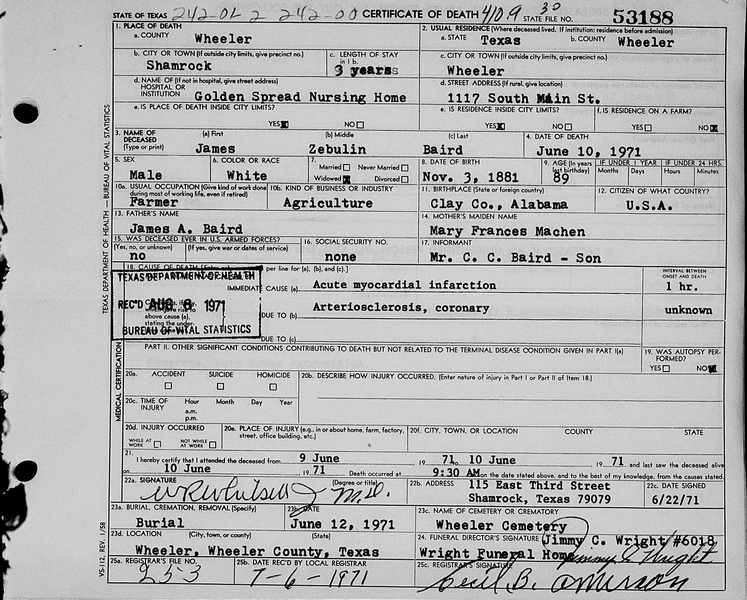 STATE OF TEXAS 242-02 2 242-00 CERTIFICATE OF DEATH 410.9 30 STATE FILE NO. 53188
1. PLACE OF DEATH
a. COUNTY Wheeler
2. USUAL RESIDENCE (Where deceased lived. If institution: residence before admission)
a. STATE Texas b. COUNTY Wheeler
b. CITY OR TOWN (If outside city limits, give precinct no.) Shamrock
c. LENGTH OF STAY in 1 b. 3 years
c. CITY OR TOWN (If outside city limits, give precinct no.) Wheeler
d. NAME OF (If not in hospital, give street address) HOSPITAL OR INSTITUTION Golden Spread Nursing Home
d. STREET ADDRESS (If rural, give location) 1117 South Main St.
e. IS PLACE OF DEATH INSIDE CITY LIMITS? YES NO
e. IS RESIDENCE INSIDE CITY LIMITS? YES NO
f. IS RESIDENCE ON A FARM? YES NO
3. NAME OF DECEASED (Type or print) (a) First James (b) Middle Zebulin (c) Last Baird
4. DATE OF DEATH June 10, 1971
5. SEX Male
6. COLOR OR RACE White
7. Married Never Married Widowed Divorced
8. DATE OF BIRTH Nov. 3, 1881
9. AGE (In years last birthday) 89
IF UNDER 1 YEAR Months Days
IF UNDER 24 HRS. Hours Minutes
10a. USUAL OCCUPATION (Give kind of work done during most of working life, even if retired) Farmer
10b. KIND OF BUSINESS OR INDUSTRY Agriculture
11. BIRTHPLACE (State or foreign country) Clay Co., Alabama
12. CITIZEN OF WHAT COUNTRY? U.S.A.
13. FATHER'S NAME James A. Baird
14. MOTHER'S MAIDEN NAME Mary Frances Machen
15. WAS DECEASED EVER IN U.S. ARMED FORCES? (Yes, no, or unknown) (If yes, give war or dates of service) no
16. SOCIAL SECURITY NO. none
17. INFORMANT Mr. C. C. Baird - Son
18. CAUSE OF DEATH per line for (a), (b), and (c).]
INTERVAL BETWEEN ONSET AND DEATH
IMMEDIATE CAUSE (a) Acute myocardial infarction 1 hr.
DUE TO (b) Arteriosclerosis, coronary unknown
DUE TO (c)
TEXAS DEPARTMENT OF HEALTH
REC'D AUG 6 1971
BUREAU OF VITAL STATISTICS
above cause (a), stating the under-
PART II. OTHER SIGNIFICANT CONDITIONS CONTRIBUTING TO DEATH BUT NOT RELATED TO THE TERMINAL DISEASE CONDITION GIVEN IN PART I(a)
19. WAS AUTOPSY PERFORMED? YES NO
20a. ACCIDENT SUICIDE HOMICIDE
20b. DESCRIBE HOW INJURY OCCURRED. (Enter nature of injury in Part I or Part II of Item 18.)
20c. TIME OF INJURY Hour a.m. p.m. Month Day Year
20d. INJURY OCCURRED WHILE AT WORK NOT WHILE AT WORK
20e. PLACE OF INJURY (e.g., in or about home, farm, factory, street, office building, etc.)
20f. CITY, TOWN, OR LOCATION COUNTY STATE
21. I hereby certify that I attended the deceased from 9 June 19 71, to 10 June 19 71 and last saw the deceased alive
on 10 June 19 71 Death occurred at 9:30 AM on the date stated above, and to the best of my knowledge, from the causes stated.
22a. SIGNATURE (Degree or title) M.D.
22b. ADDRESS 115 East Third Street Shamrock, Texas 79079
22c. DATE SIGNED 6/22/71
23a. BURIAL, CREMATION, REMOVAL (Specify) Burial
23b. DATE June 12, 1971
23c. NAME OF CEMETERY OR CREMATORY Wheeler Cemetery
23d. LOCATION (City, town, or county) (State) Wheeler, Wheeler County, Texas
24. FUNERAL DIRECTOR'S SIGNATURE Jimmy C. Wright #6018
Wright Funeral Home Jimmy C Wright
25a. REGISTRAR'S FILE NO. 253
25b. DATE REC'D BY LOCAL REGISTRAR 7-6-1971
25c. REGISTRAR'S SIGNATURE Cecil B.
TEXAS DEPARTMENT OF HEALTH — BUREAU OF VITAL STATISTICS
MEDICAL CERTIFICATION
VS-112, REV. 1/58